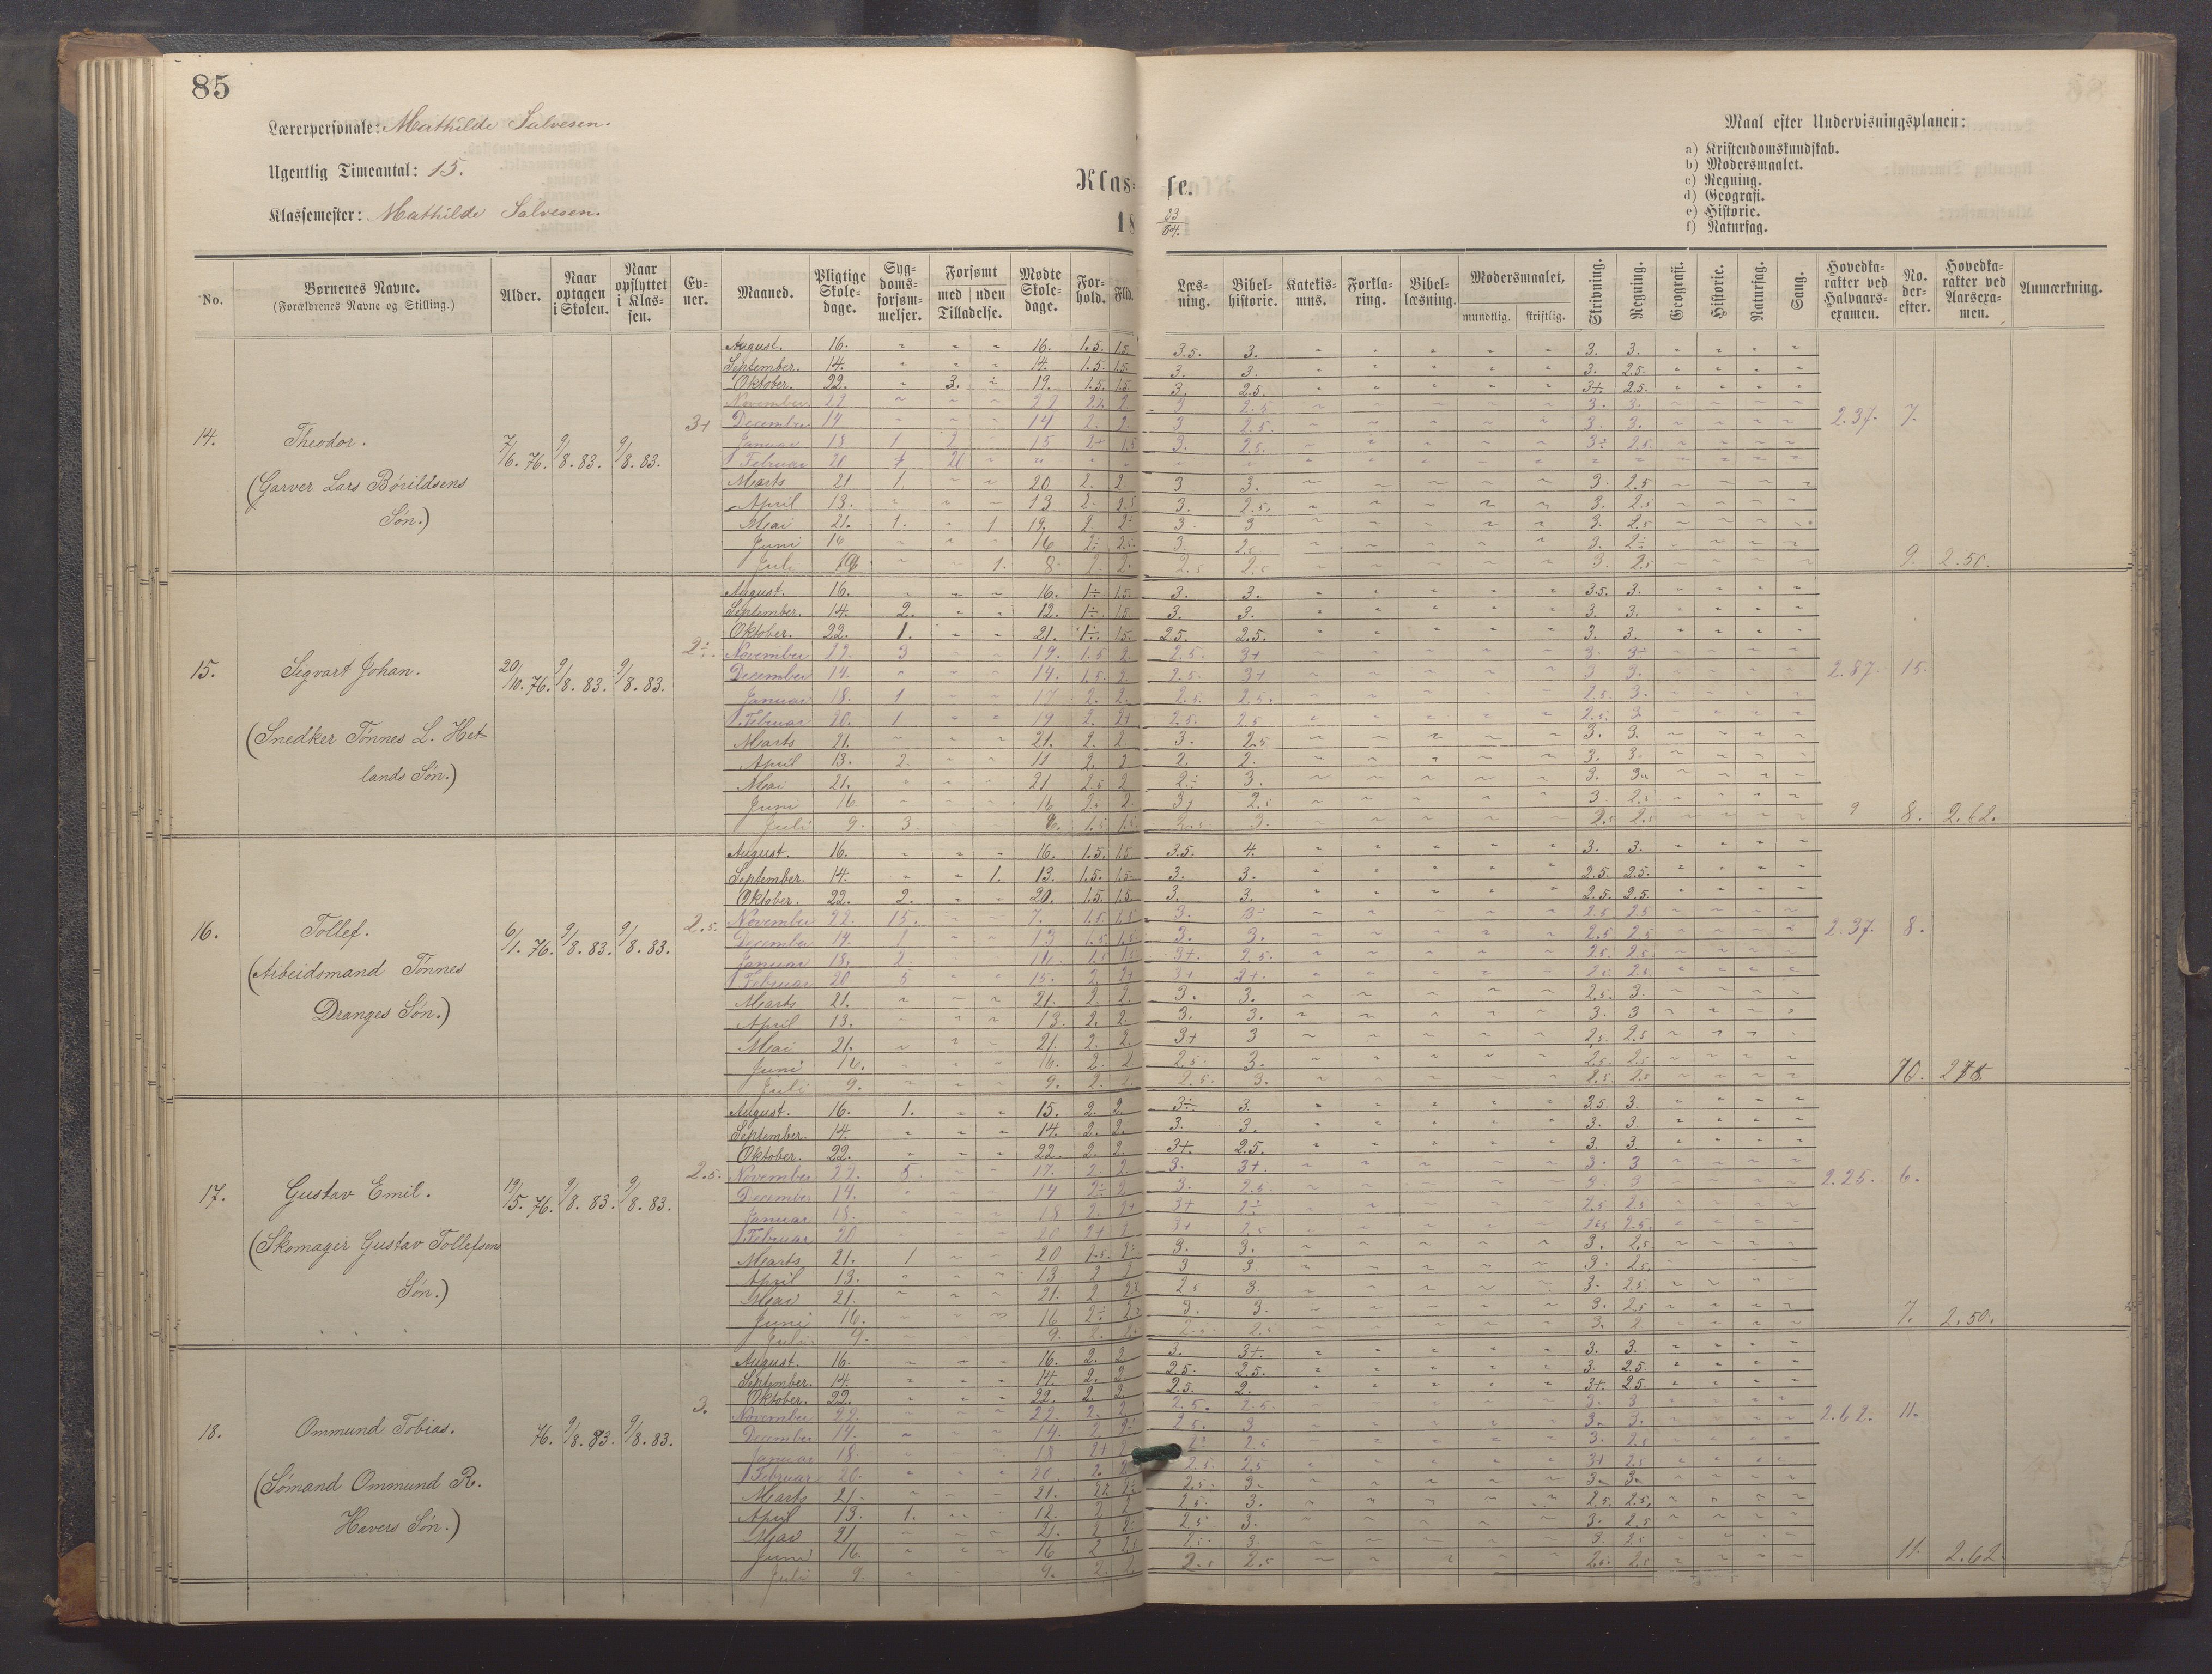 85
Lærerpersonale: Mathilde Salvesen.
Ugentlig Timeantal: 15.
Klassemester: Mathilde Salvesen.
Klas-
se.
18
83
84.
Maal efter Undervisningsplanen:
a) Kristendomskundskab.
b) Modersmaalet.
c) Regning.
d) Geografi.
e) Historie.
f) Naturfag.
No.
Børnenes Navne.
(Forældrenes Navne og Stilling.)
Alder.
Naar optagen i Skolen.
Naar opflyttet i Klas-sen.
Ev-ner.
Maaned.
Pligtige Skole-dage.
Syg-doms-forsøm-melser.
Forsømt
med uden
Tilladelse.
Mødte Skole-dage.
For-hold.
Flid.
Læs-ning.
Bibel-historie.
Katekis-mus.
Forkla-ring.
Bibel-læsning.
Modersmaalet,
mundtlig. skriftlig.
Skrivning.
Regning.
Geografi.
Historie.
Naturfag.
Sang.
Hovedka-rakter ved Halvaars-examen.
No. der-efter.
Hovedka-rakter ved Aarsexa-men.
Anmærkning.
14. Theodor. 7/6. 76. 9/8. 83. 9/8. 83. 3+
(Garver Lars Börildsens
Søn.)
August. 16. " " " 16. 1.5. 1.5. 3.5. 3. " " " " " 3. 3. " " " "
September. 14. " " " 14. 1.5. 1.5. 3. 3. " " " " " 3. 2.5. " " " "
Oktober. 22. " 3. " 19. 1.5. 1.5 3. 2.5. " " " " " 3+. 2.5. " " " "
November 22
December 14 14 2. 2. 3 2.5. 3. 3. 2.37. 7.
Januar 18 1 2 15 2+ 1.5 3. 2.5. 3÷ 2.5.
Februar 20
Marts 21 1 20 2. 2 3 3. 3. 2.5
April 13. 13 2. 2.5 3. 2.5. 3. 2.5
Mai 21. 1. 1 19. 2. 2 3 3 3. 2.5
Juni 16 16 2÷ 2.5. 3. 2.5. 3. 2÷
Juli 1. 8 2. 2. 2.5 2.5 3. 2.5 9. 2.50.
15. Sigvart Johan. 20/10. 76. 9/8. 83. 9/8. 83. 2÷.
(Snedker Tønnes L. Het-
lands Søn.)
August. 16. " " " 16. 1÷ 1.5. 3. 3. " " " " " 3.5. 3. " " " "
September. 14. 2. " " 12. 1÷. 1.5 3. 3. " " " " " 3. 3. " " " "
Oktober. 22. 1. " " 21. 1÷. 1.5. 2.5. 2.5. " " " " " 3. 3. " " " "
November 22. 3 19. 1.5 2 2.5. 3+ 3. 3÷
December 14. 14. 1.5. 2 2.5. 3+ 3 3. 2.87. 15.
Januar 18. 1 17 2. 2. 2.5. 2.5. 2.5. 3.
Februar 20. 1 19 2. 2+ 2.5. 2.5 2.5. 3.
Marts 21. 21. 2. 2 3. 2.5 3. 3.
April 13. 2. 11 2. 2 2. 2. 3. 3.
Mai 21. 21 2.5 2 2÷ 3. 3.
Juni 16. 16 2. 2.5 3 2.5
Juli 9. 3 1.5 1.5 3. 2.5 2.5 8. 2.62.
16. Tollef. 6/1. 76. 9/8. 83. 9/8. 83. 2.5.
(Arbeidsmand Tønnes
Dranges Søn.)
August. 16. " " " 16. 1.5. 1.5 3.5. 4. " " " " " 3. 3. " " " "
September. 14. " " 1. 13. 1.5. 1.5. 3. 3. " " " " " 2.5. 2.5. " " " "
Oktober. 22. 2. " " 20. 1.5. 1.5 3. 3. " " " " " 2.5. 2.5. " " " "
November 22. 15. 7. 1.5 1.5 3. 3÷ 2.5 2.5
December 14. 1 13 1.5. 1.5 3. 3. 2.5 2.5 2.37. 8.
Januar 18. 2. 16 1.5 3+. 2.5. 2.5. 2.5.
Februar 20 5 15. 2. 2+ 3+ 2.5. 2.5.
Marts 21. 21. 2. 2. 3. 3. 2.5. 3.
April 13. 13. 2. 2. 3. 3. 3. 3
Mai 21. 21. 2. 2. 3+ 3 2.5. 2.5
Juni 16. 16. 2. 2 2.5. 3. 2.5. 2.5
Juli 9. 9. 2. 2. 2.5. 3. 2.5 2.5 10.
17. Gustav Emil. 19/5. 76. 9/8. 83. 9/8. 83. 2.5.
(Skomager Gustav Tollefsens
Søn.)
August. 16. 1. " " 15. 2. 2. 3÷ 3. " " " " " 3.5. 3. " " " "
September. 14. " " " 14. 2. 2. 3. 3. " " " " " 3. 3. " " " "
Oktober. 22. " " " 22. 2. 2. 3+. 2.5. " " " " " 3. 3. " " " "
November 22. 5. 17. 2. 2 3. 3+. 3. 3
December 14. 14 2÷ 2 3. 2.5. 3. 3 2.25. 6.
Januar 18. 18 2. 2+ 3+ 2.5 2.5
Februar 20 20 2+ 2 3+ 2.5 2.5.
Marts 21. 1 20 3. 3. 3. 2.5
April 13. 13 2 2 3 3. 3. 2.5.
Mai 21. 21. 2. 2.5 2.5 3. 3. 2.5.
Juni 16. 16 2÷ 3. 3. 3. 2.5
Juli 9. 9. 2. 2. 2.5 3. 2 7. 2.50.
18. Ommund Tobias. 76. 9/8. 83. 9/8. 83. 3.
(Sømand Ommund R.
Havers Søn.)
August. 16. " " " 16. 2. 2 3. 3+. " " " " " 3. 3. " " " "
September. 14. " " " 14. 2. 2. 2.5. 2.5. " " " " " 3. 2.5. " " " "
Oktober. 22. " " " 22. 2. 2. 2.5. 2. " " " " " 3+. 2.5. " " " "
November 22. 22. 2. 2 2.5. 2.5. 3. 3
December 14. 14. 2 2÷ 2.5. 3 3. 3. 2.62. 11.
Januar 18. 18 2+ 2.5 3. 2.5
Februar 20. 20. 2. 2.5. 2.5 3+ 2.5
Marts 21. 21. 2.5. 3. 3. 3.
April 13. 1. 12. 2 2 2.5. 3. 2.5. 2.5.
Mai 21 21. 2 2 2.5 3. 3. 2.5
Juni 16. 16 2 2.5 2.5. 3. 3. 2.5
Juli 9. 9. 2. 2. 2.5 2.5 2.5. 2.5 11. 2.62.